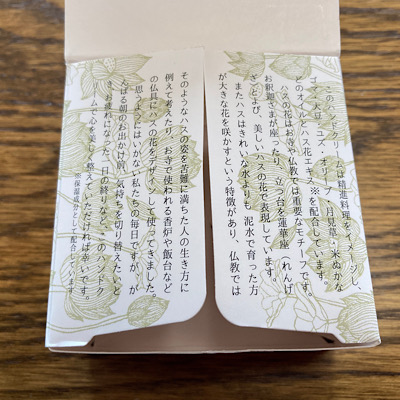 このハンドクリームは精進料理をイメージし、
ゴマ・大豆・ユズ・オリーブ・月見草・米ぬかな
どのオイルとハス花エキス※を配合しています。
ハスの花はお寺や仏教では重要なモチーフです。
お釈迦さまが座ったり、立つ台を蓮華座（れんげ
ざ）とよび、美しいハスの花で表現しています。
またハスはきれいな水よりも、泥水で育った方
が大きな花を咲かすという特徴があり、仏教では
そのようなハスの姿を苦難に満ちた人の生き方に
例えて考えたり、お寺で使われる香炉や飯台など
の仏具にハスの花をデザインして使ってきました。
思うようにはいかない私たちの毎日ですが、が
んばる朝のお出かけ前、気持ちを切り替えたいと
き、お疲れになった一日の終りなど、このハンドク
リームで心を美しく整えていただければ幸いです。
※保湿成分として配合しています。